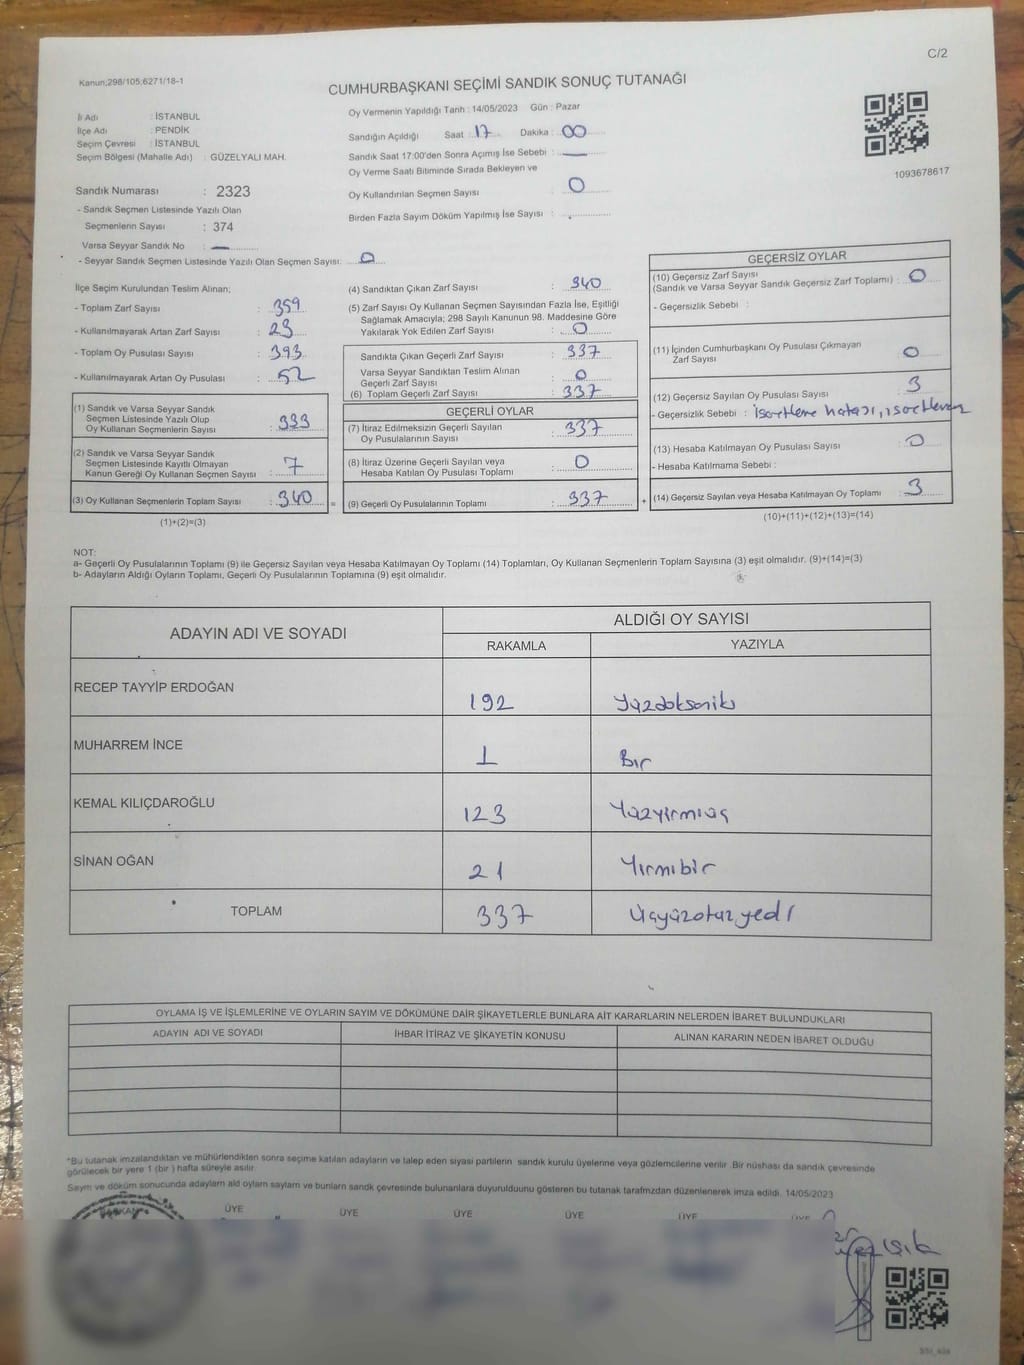 C/2
Kanun;298/105;6271/18-1
CUMHURBAŞKANI SEÇİMİ SANDIK SONUÇ TUTANAĞI
İl Adı : İSTANBUL
İlçe Adı : PENDİK
Seçim Çevresi : İSTANBUL
Seçim Bölgesi (Mahalle Adı) : GÜZELYALI MAH.
Sandık Numarası : 2323
- Sandık Seçmen Listesinde Yazılı Olan
Seçmenlerin Sayısı : 374
Varsa Seyyar Sandık No : —
- Seyyar Sandık Seçmen Listesinde Yazılı Olan Seçmen Sayısı: 0
Oy Vermenin Yapıldığı Tarih : 14/05/2023 Gün : Pazar
Sandığın Açıldığı Saat : 17 Dakika : 00
Sandık Saat 17:00'den Sonra Açımış İse Sebebi : —
Oy Verme Saati Bitiminde Sırada Bekleyen ve
Oy Kullandırılan Seçmen Sayısı : 0
Birden Fazla Sayım Döküm Yapılmış İse Sayısı :
1093678617
İlçe Seçim Kurulundan Teslim Alınan;
- Toplam Zarf Sayısı : 359
- Kullanılmayarak Artan Zarf Sayısı : 23
- Toplam Oy Pusulası Sayısı : 393
- Kullanılmayarak Artan Oy Pusulası : 52
(1) Sandık ve Varsa Seyyar Sandık
Seçmen Listesinde Yazılı Olup
Oy Kullanan Seçmenlerin Sayısı : 333
(2) Sandık ve Varsa Seyyar Sandık
Seçmen Listesinde Kayıtlı Olmayan
Kanun Gereği Oy Kullanan Seçmen Sayısı : 7
(3) Oy Kullanan Seçmenlerin Toplam Sayısı : 340 =
(1)+(2)=(3)
(4) Sandıktan Çıkan Zarf Sayısı : 340
(5) Zarf Sayısı Oy Kullanan Seçmen Sayısından Fazla İse, Eşitliği
Sağlamak Amacıyla; 298 Sayılı Kanunun 98. Maddesine Göre
Yakılarak Yok Edilen Zarf Sayısı : 0
Sandıkta Çıkan Geçerli Zarf Sayısı : 337
Varsa Seyyar Sandıktan Teslim Alınan
Geçerli Zarf Sayısı : 0
(6) Toplam Geçerli Zarf Sayısı : 337
GEÇERLİ OYLAR
(7) İtiraz Edilmeksizin Geçerli Sayılan
Oy Pusulalarının Sayısı : 337
(8) İtiraz Üzerine Geçerli Sayılan veya
Hesaba Katılan Oy Pusulası Toplamı : 0
(9) Geçerli Oy Pusulalarının Toplamı : 337 +
GEÇERSİZ OYLAR
(10) Geçersiz Zarf Sayısı
(Sandık ve Varsa Seyyar Sandık Geçersiz Zarf Toplamı) : 0
- Geçersizlik Sebebi :
(11) İçinden Cumhurbaşkanı Oy Pusulası Çıkmayan
Zarf Sayısı : 0
(12) Geçersiz Sayılan Oy Pusulası Sayısı : 3
- Geçersizlik Sebebi : isaretleme hatası,
(13) Hesaba Katılmayan Oy Pusulası Sayısı : 0
- Hesaba Katılmama Sebebi :
(14) Geçersiz Sayılan veya Hesaba Katılmayan Oy Toplamı : 3
(10)+(11)+(12)+(13)=(14)
NOT:
a- Geçerli Oy Pusulalarının Toplamı (9) ile Geçersiz Sayılan veya Hesaba Katılmayan Oy Toplamı (14) Toplamları, Oy Kullanan Seçmenlerin Toplam Sayısına (3) eşit olmalıdır. (9)+(14)=(3)
b- Adayların Aldığı Oyların Toplamı, Geçerli Oy Pusulalarının Toplamına (9) eşit olmalıdır.
ADAYIN ADI VE SOYADI ALDIĞI OY SAYISI
RAKAMLA YAZIYLA
RECEP TAYYİP ERDOĞAN 192 Yüzdoksaniki
MUHARREM İNCE 1 Bir
KEMAL KILIÇDAROĞLU 123 Yüzyirmiüç
SİNAN OĞAN 21 Yirmibir
TOPLAM 337 Üçyüzotuzyedi
OYLAMA İŞ VE İŞLEMLERİNE VE OYLARIN SAYIM VE DÖKÜMÜNE DAİR ŞİKAYETLERLE BUNLARA AİT KARARLARIN NELERDEN İBARET BULUNDUKLARI
ADAYIN ADI VE SOYADI İHBAR İTİRAZ VE ŞİKAYETİN KONUSU ALINAN KARARIN NEDEN İBARET OLDUĞU
*Bu tutanak imzalandıktan ve mühürlendikten sonra seçime katılan adayların ve talep eden siyasi partilerin sandık kurulu üyelerine veya gözlemcilerine verilir. Bir nüshası da sandık çevresinde
görülecek bir yere 1 (bir ) hafta süreyle asılır.
Sayım ve döküm sonucunda adayların ald oyların sayların ve bunların sandk çevresinde bulunanlara duyurulduunu gösteren bu tutanak tarafmzdan düzenlenerek imza edildi. 14/05/2023
BAŞKAN ÜYE ÜYE ÜYE ÜYE ÜYE ÜYE